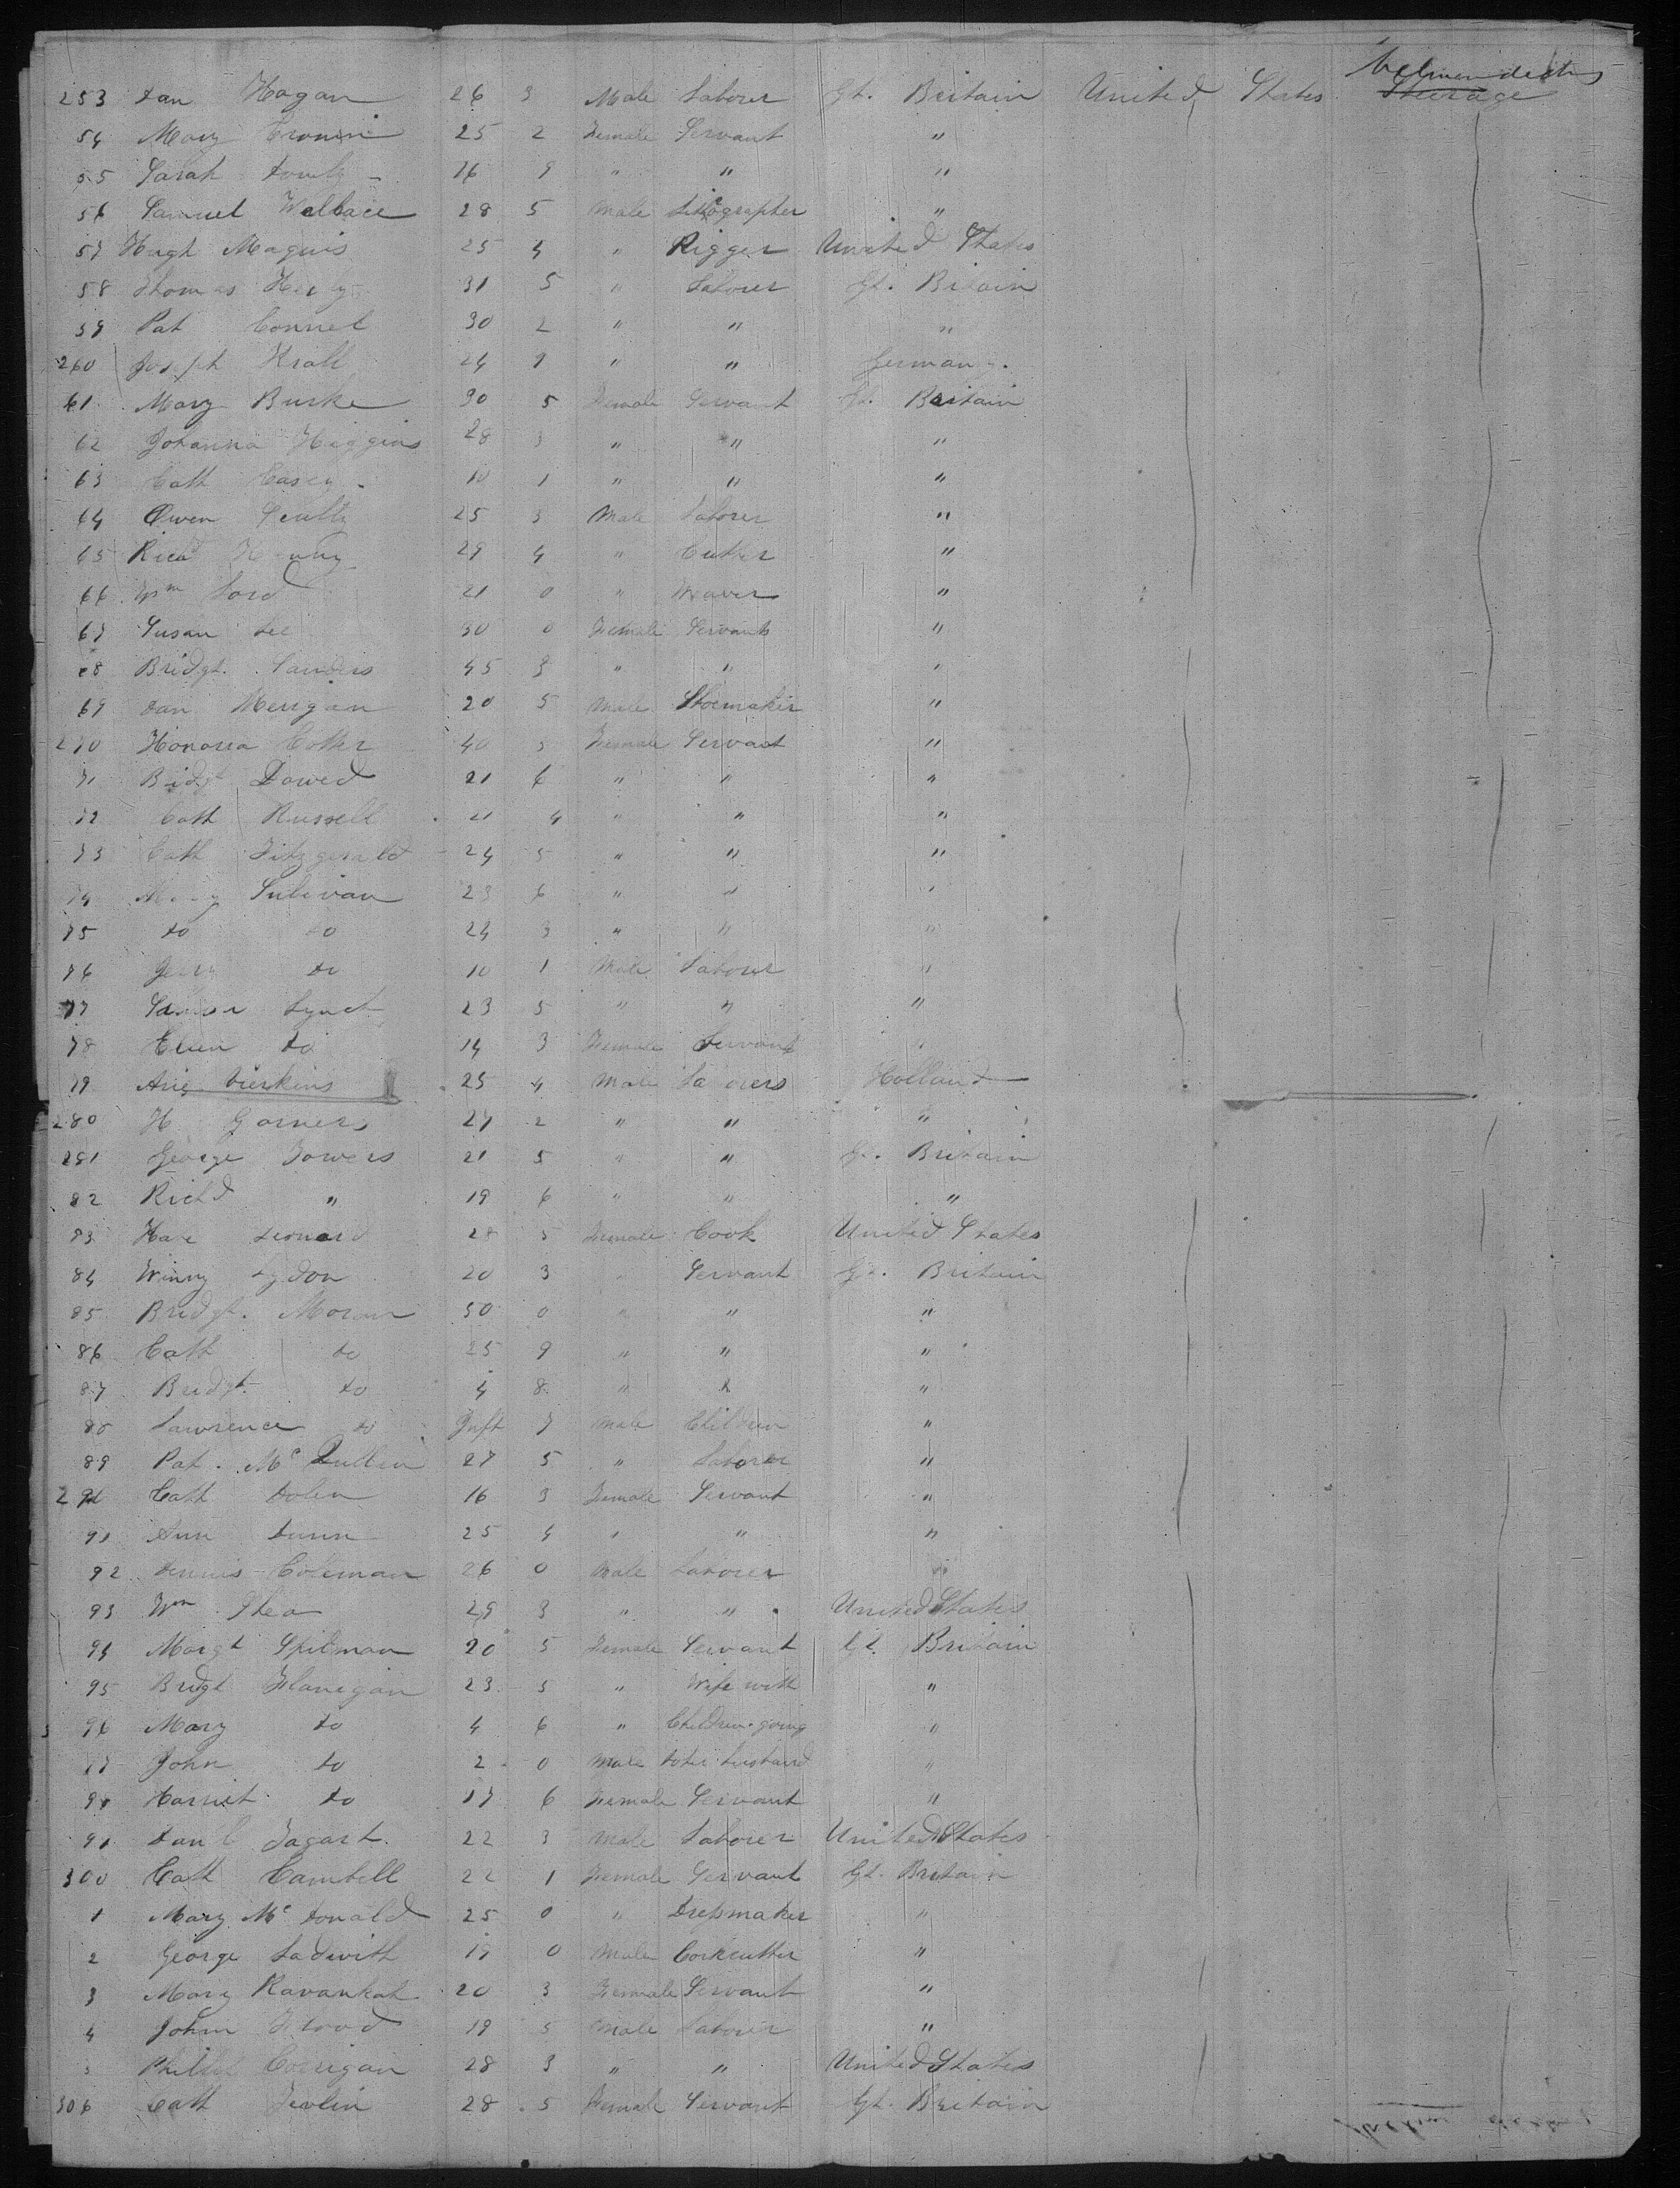 253 Dan Hogan 26 3 Male Laborer Gt. Britain United States Steerage
54 Mary Cronin 25 2 Female Servant "
55 Sarah 16 9 " " "
56 Samuel Wallace 28 5 Male Lithographer "
57 Hugh Maguis 25 4 " Rigger United States
58 Thomas 31 5 " Laborer Gt. Britain
59 Pat Connel 30 2 " " "
260 Joseph Krall 24 9 " " Germany.
61 Mary Burke 30 5 Female Servant Gt. Britain
62 Johanna Higgins 28 3 " " "
63 Cath Casey 10 1 " " "
64 Owen Scully 25 3 Male Laborer "
65 Richd 29 4 " Cutter "
66 Wm Lord 21 0 " Weaver "
67 Susan Lee 30 0 Female Servants "
68 Bridgt. Sanders 45 3 " " "
69 Dan Merigan 20 5 Male Shoemaker "
270 Honorra Cotter 40 5 Female Servant "
71 Bidgt Dowed 21 6 " " "
72 Cath Russell 21 4 " " "
73 Cath Fitzgerald 24 5 " " "
74 Mary Sulivan 23 6 " " "
75 do do 24 3 " " "
76 Jerry do 10 1 Male Laborer "
77 Lynch 23 5 " " "
78 Ellen do 14 3 Female Servant "
79 Arie Vierkins 25 4 Male Laborers Holland
280 H Garners 27 2 " " "
281 George Towers 21 5 " " Gt. Britain
82 Richd " 19 6 " " "
83 Kate Leonard 28 5 Female Cook United States
84 Winny Lydon 20 3 " Servant Gt. Britain
85 Bridgt. Moran 50 0 " " "
86 Cath do 25 9 " " "
87 Bridgt. do 4 8 " "
88 Lawrence do Inft 7 Male Children "
89 Pat. Mc Quillen 27 5 " Laborer "
290 Cath Dolen 16 3 Female Servant "
91 Ann Dunn 25 4 " " "
92 Dennis Coleman 26 0 Male Laborer "
93 Wm Shea 29 3 " " United States
94 Margt Spilman 20 5 Female Servant Gt. Britain
95 Bridgt Flanegan 23 5 " Wife with "
96 Mary do 4 6 " Children going "
97 John do 2 0 Male to her husband "
98 Harriet do 17 6 Female Servant "
99 Danl Tagart. 22 3 Male Laborer United States
300 Cath Cambell 22 1 Female Servant Gt. Britain
1 Mary Mc Donald 25 0 " Dressmaker "
2 George Ladwith 19 0 Male Corkcutter "
3 Mary Kavanhah 20 3 Female Servant "
4 John Flood 19 5 Male Laborer "
5 Phillip Corrigan 28 3 " " United States
306 Cath Devlin 28 5 Female Servant Gt. Britain